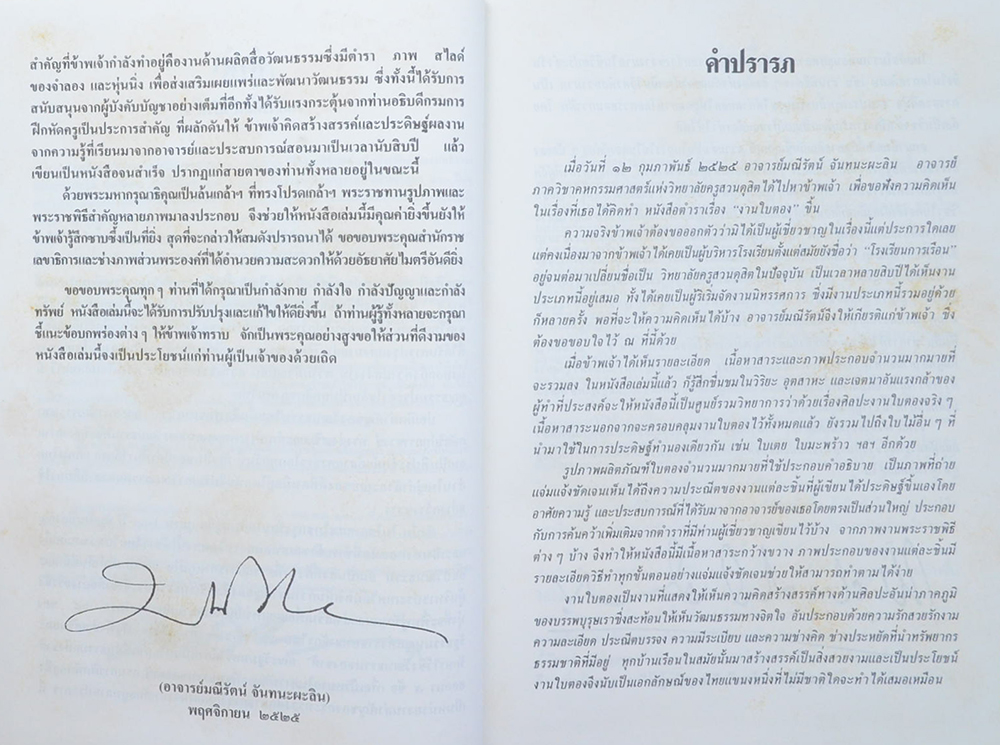 สำคัญที่ข้าพเจ้ากำลังทำอยู่คืองานด้านผลิตสื่อวัฒนธรรมซึ่งมีตำรา ภาพ สไลด์
ของจำลอง และหุ่นนิ่ง เพื่อส่งเสริมเผยแพร่และพัฒนาวัฒนธรรม ซึ่งทั้งนี้ได้รับการ
สนับสนุนจากผู้บังคับบัญชาอย่างเต็มที่อีกทั้งได้รับแรงกระตุ้นจากท่านอธิบดีกรมการ
ฝึกหัดครูเป็นประการสำคัญ ที่ผลักดันให้ ข้าพเจ้าคิดสร้างสรรค์และประดิษฐ์ผลงาน
จากความรู้ที่เรียนมาจากอาจารย์และประสบการณ์สอนมาเป็นเวลานับสิบปี แล้ว
เขียนเป็นหนังสือจนสำเร็จ ปรากฏแก่สายตาของท่านทั้งหลายอยู่ในขณะนี้
ด้วยพระมหากรุณาธิคุณเป็นล้นเกล้าฯ ที่ทรงโปรดเกล้าฯ พระราชทานรูปภาพและ
พระราชพิธีสำคัญหลายภาพมาลงประกอบ จึงช่วยให้หนังสือเล่มนี้มีคุณค่ายิ่งขึ้นยังให้
ข้าพเจ้ารู้สึกซาบซึ้งเป็นที่ยิ่ง สุดที่จะกล่าวให้สมดังปรารถนาได้ ขอขอบพระคุณสำนักราช
เลขาธิการและช่างภาพส่วนพระองค์ที่ได้อำนวยความสะดวกให้ด้วยอัธยาศัยไมตรีอันดียิ่ง
ขอขอบพระคุณทุก ๆ ท่านที่ได้กรุณาเป็นกำลังกาย กำลังใจ กำลังปัญญาและกำลัง
ทรัพย์ หนังสือเล่มนี้จะได้รับการปรับปรุงและแก้ไขให้ดียิ่งขึ้น ถ้าท่านผู้รู้ทั้งหลายจะกรุณา
ชี้แนะข้อบกพร่องต่าง ๆ ให้ข้าพเจ้าทราบ จักเป็นพระคุณอย่างสูงขอให้ส่วนที่ดีงามของ
หนังสือเล่มนี้จงเป็นประโยชน์แก่ท่านผู้เป็นเจ้าของด้วยเถิด
(อาจารย์มณีรัตน์ จันทนะผะลิน)
พฤศจิกายน ๒๕๒๕
คำปรารภ
เมื่อวันที่ ๑๒ กุมภาพันธ์ ๒๕๒๕ อาจารย์มณีรัตน์ จันทนะผะลิน อาจารย์
ภาควิชาคหกรรมศาสตร์แห่งวิทยาลัยครูสวนดุสิตได้ไปหาข้าพเจ้า เพื่อขอฟังความคิดเห็น
ในเรื่องที่เธอได้คิดทำ หนังสือตำราเรื่อง “งานใบตอง” ขึ้น
ความจริงข้าพเจ้าต้องขอออกตัวว่ามิได้เป็นผู้เชี่ยวชาญในเรื่องนี้แต่ประการใดเลย
แต่คงเนื่องมาจากข้าพเจ้าได้เคยเป็นผู้บริหารโรงเรียนตั้งแต่สมัยยังชื่อว่า “โรงเรียนการเรือน”
อยู่จนต่อมาเปลี่ยนชื่อเป็น วิทยาลัยครูสวนดุสิตในปัจจุบัน เป็นเวลาหลายสิบปีได้เห็นงาน
ประเภทนี้อยู่เสมอ ทั้งได้เคยเป็นผู้ริเริ่มจัดงานนิทรรศการ ซึ่งมีงานประเภทนี้รวมอยู่ด้วย
ก็หลายครั้ง พอที่จะให้ความคิดเห็นได้บ้าง อาจารย์มณีรัตน์จึงให้เกียรติแก่ข้าพเจ้า ซึ่ง
ต้องขอขอบใจไว้ ณ ที่นี้ด้วย
เมื่อข้าพเจ้าได้เห็นรายละเอียด เนื้อหาสาระและภาพประกอบจำนวนมากมายที่
จะรวมลง ในหนังสือเล่มนี้แล้ว ก็รู้สึกชื่นชมในวิริยะ อุตสาหะ และเจตนาอันแรงกล้าของ
ผู้ทำที่ประสงค์จะให้หนังสือนี้เป็นศูนย์รวมวิทยาการว่าด้วยเรื่องศิลปะงานใบตองจริง ๆ
เนื้อหาสาระนอกจากจะครอบคลุมงานใบตองไว้ทั้งหมดแล้ว ยังรวมไปถึงใบไม้อื่น ๆ ที่
นำมาใช้ในการประดิษฐ์ทำนองเดียวกัน เช่น ใบเตย ใบมะพร้าว ฯลฯ อีกด้วย
รูปภาพผลิตภัณฑ์ใบตองจำนวนมากมายที่ใช้ประกอบคำอธิบาย เป็นภาพที่ถ่าย
แจ่มแจ้งชัดเจนเห็นได้ถึงความประณีตของงานแต่ละชิ้นที่ผู้เขียนได้ประดิษฐ์ขึ้นเองโดย
อาศัยความรู้ และประสบการณ์ที่ได้รับมาจากอาจารย์ของเธอโดยตรงเป็นส่วนใหญ่ ประกอบ
กับการค้นคว้าเพิ่มเติมจากตำราที่มีท่านผู้เชี่ยวชาญเขียนไว้บ้าง จากภาพงานพระราชพิธี
ต่าง ๆ บ้าง จึงทำให้หนังสือนี้มีเนื้อหาสาระกว้างขวาง ภาพประกอบของงานแต่ละชิ้นมี
รายละเอียดวิธีทำทุกขั้นตอนอย่างแจ่มแจ้งชัดเจนช่วยให้สามารถทำตามได้ง่าย
งานใบตองเป็นงานที่แสดงให้เห็นความคิดสร้างสรรค์ทางด้านศิลปะอันน่าภาคภูมิ
ของบรรพบุรุษเราซึ่งสะท้อนให้เห็นวัฒนธรรมทางจิตใจ อันประกอบด้วยความรักสวยรักงาม
ความละเอียด ประณีตบรรจง ความมีระเบียบ และความช่างคิด ช่างประหยัดที่นำทรัพยากร
ธรรมชาติที่มีอยู่ ทุกบ้านเรือนในสมัยนั้นมาสร้างสรรค์เป็นสิ่งสวยงามและเป็นประโยชน์
งานใบตองจึงนับเป็นเอกลักษณ์ของไทยแขนงหนึ่งที่ไม่มีชาติใดจะทำได้เสมอเหมือน